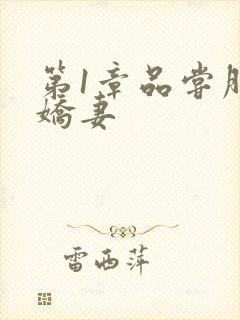 第1章品尝
娇妻
雷西萍